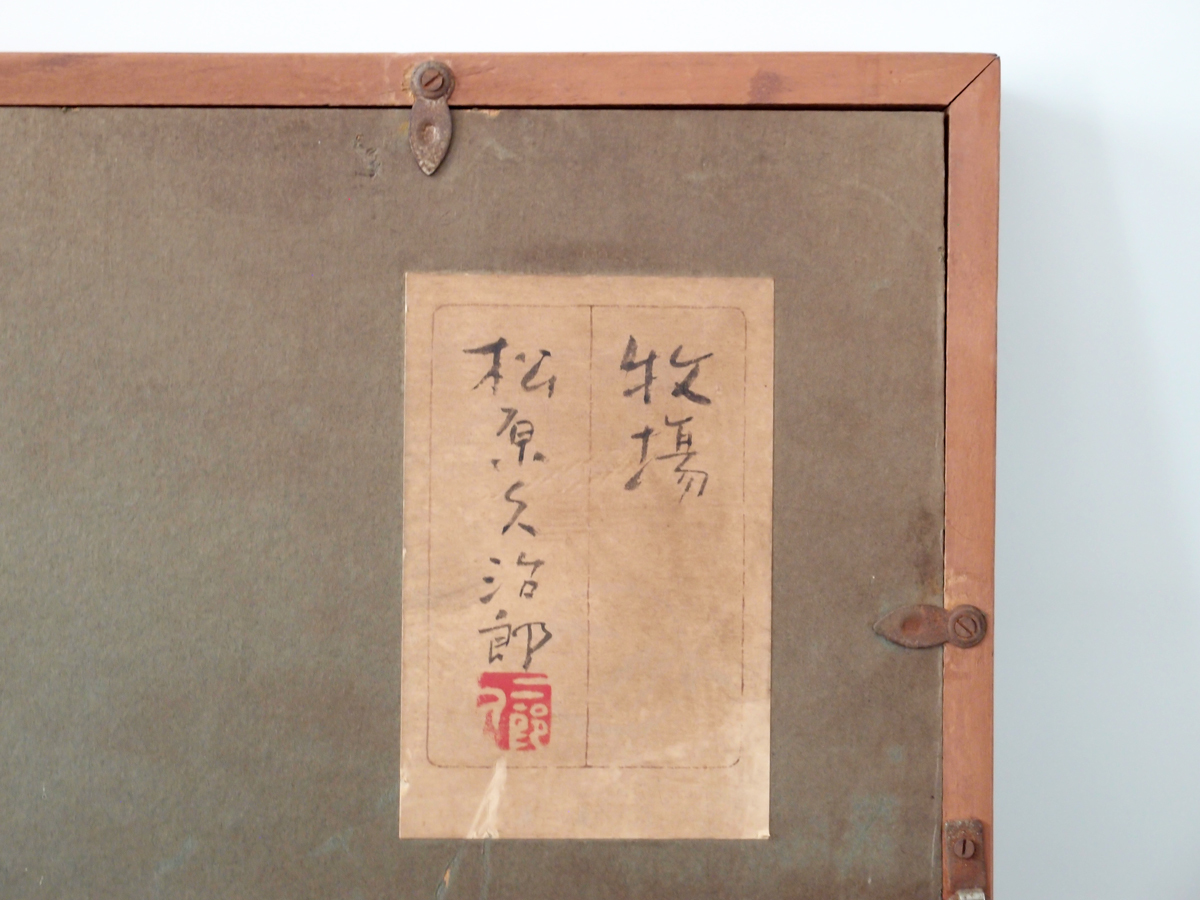 牧場
松原久治郎